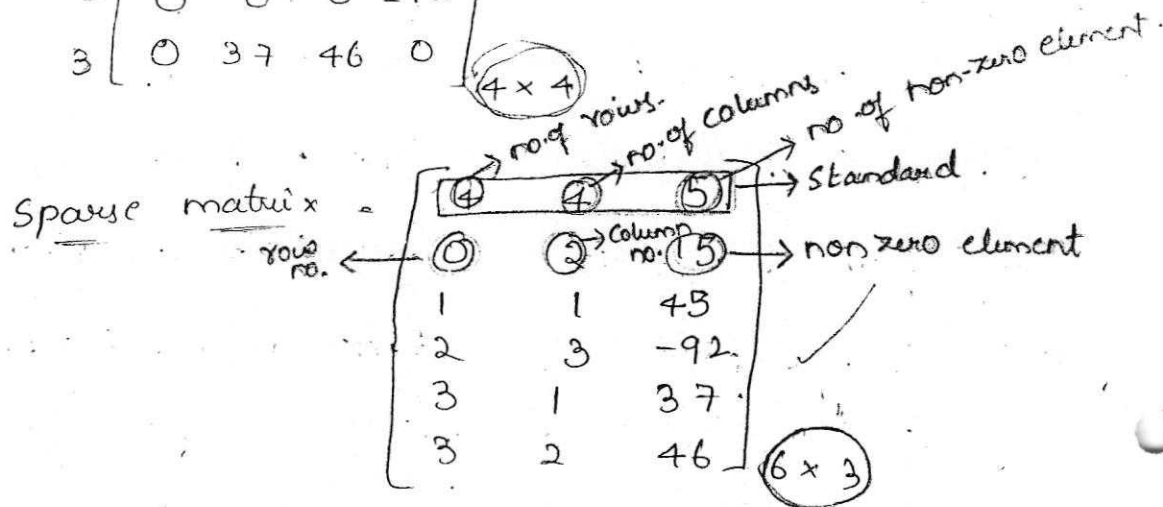 3 0 37 46 0
4 × 4
no. of rows.
no. of columns
no. of non-zero element.
Sparse matrix =
4 4 5 → Standard.
row no. ← 0 2 → Column no. 15 → non zero element
1 1 45
2 3 -92
3 1 37
3 2 46
6 × 3